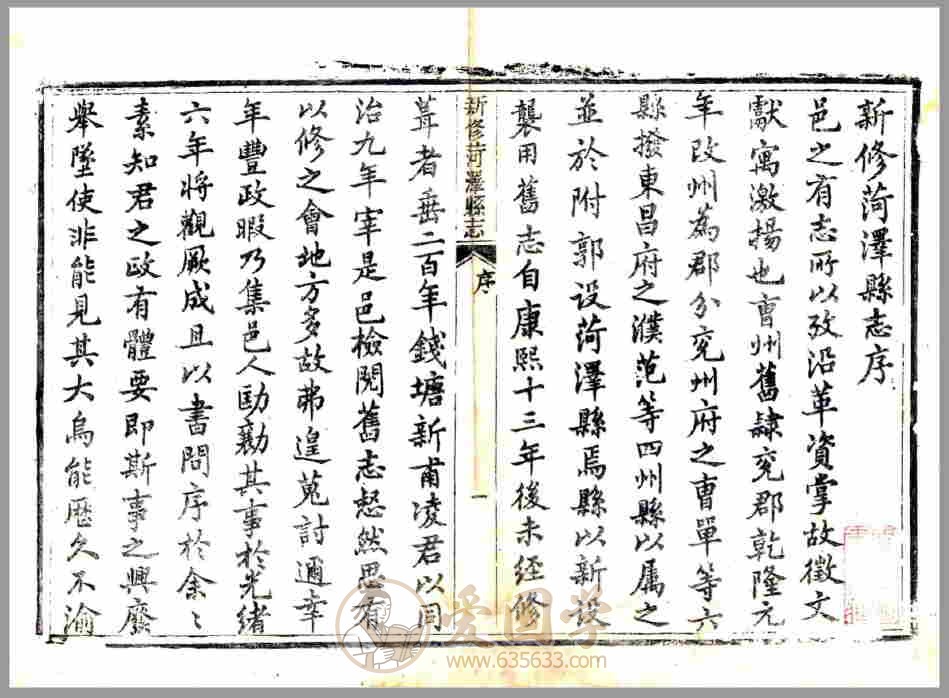 新修菏澤縣志序
邑之有志所以攷沿革資掌故徵文
獻寓激揚也曹州舊隸兖郡乾隆元
年改州為郡分兖州府之曹單等六
縣撥東昌府之濮范等四州縣以属之
並於附郭設菏澤縣焉縣以新設
襲用舊志自康熙十三年後未經修
新修菏澤縣志
序
一
葺者垂二百年錢塘新甫凌君以同
治九年宰是邑檢閱舊志惄然思有
以修之會地方多故弗遑蒐討邇幸
年豐政暇乃集邑人勷其事於光緒
六年將觀厥成且以書問序於余〻
素知君之政有體要即斯事之興廢
舉墜使非能見其大烏能歷久不渝
爱国学
www.635633.com